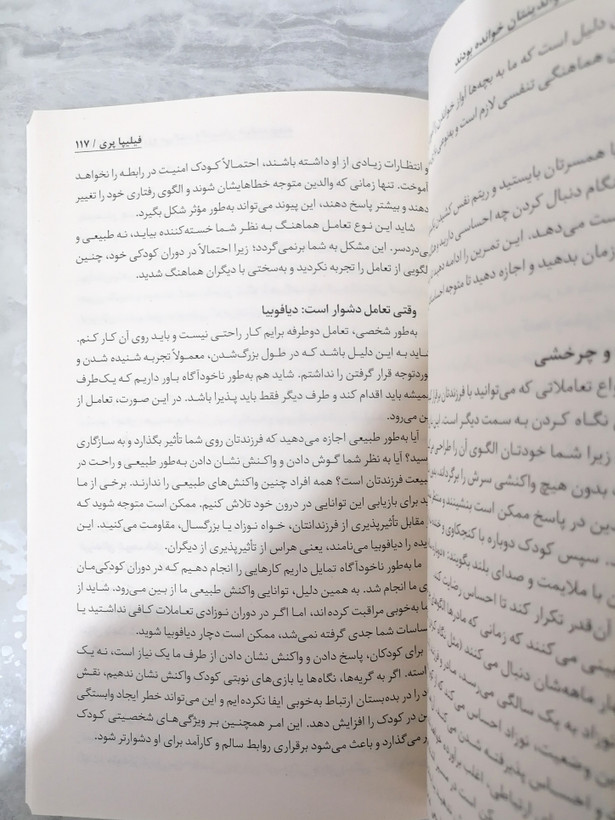 فیلیپا پری / ۱۱۷
و انتظارات زیادی از او داشته باشند، احتمالاً کودک امنیت در رابطه را نخواهد
آموخت. تنها زمانی که والدین متوجه خطاهایشان شوند و الگوی رفتاری خود را تغییر
دهند و بیشتر پاسخ دهند، این پیوند می‌تواند به‌طور مؤثر شکل بگیرد.
شاید این نوع تعامل هماهنگ به نظر شما خسته‌کننده بیاید، نه طبیعی و
بی‌دردسر. این مشکل به شما برنمی‌گردد؛ زیرا احتمالاً در دوران کودکی خود، چنین
الگویی از تعامل را تجربه نکردید و به‌سختی با دیگران هماهنگ شدید.
وقتی تعامل دشوار است: دیافوبیا
به‌طور شخصی، تعامل دوطرفه برایم کار راحتی نیست و باید روی آن کار کنم.
شاید به این دلیل باشد که در طول بزرگ‌شدن، معمولاً تجربه شنیده شدن و
موردتوجه قرار گرفتن را نداشتم. شاید هم به‌طور ناخودآگاه باور داریم که یک‌طرف
همیشه باید اقدام کند و طرف دیگر فقط باید پذیرا باشد. در این صورت، تعامل از
بین می‌رود.
آیا به‌طور طبیعی اجازه می‌دهید که فرزندتان روی شما تأثیر بگذارد و به سازگاری
برسید؟ آیا به نظر شما گوش دادن و واکنش نشان دادن به‌طور طبیعی و راحت در
طبیعت فرزندتان است؟ همه افراد چنین واکنش‌های طبیعی را ندارند. برخی از ما
باید برای بازیابی این توانایی در درون خود تلاش کنیم. ممکن است متوجه شوید که
مقابل تأثیرپذیری از فرزندانتان، خواه نوزاد یا بزرگسال، مقاومت می‌کنید. این
پدیده را دیافوبیا می‌نامند، یعنی هراس از تأثیرپذیری از دیگران.
ما به‌طور ناخودآگاه تمایل داریم کارهایی را انجام دهیم که در دوران کودکی‌مان
ی ما انجام شد. به همین دلیل، توانایی واکنش طبیعی ما از بین می‌رود. شاید از
ما به‌خوبی مراقبت کرده اند، اما اگر در دوران نوزادی تعاملات کافی نداشتید یا
احساسات شما جدی گرفته نمی‌شد، ممکن است دچار دیافوبیا شوید.
برای کودکان، پاسخ دادن و واکنش نشان دادن از طرف ما یک نیاز است، نه یک
خواسته. اگر به گریه‌ها، نگاه‌ها یا بازی‌های نوبتی کودک واکنش نشان ندهیم، نقش
خود را در بده‌بستان ارتباط به‌خوبی ایفا نکرده‌ایم و این می‌تواند خطر ایجاد وابستگی
در کودک را افزایش دهد. این امر همچنین بر ویژگی‌های شخصیتی کودک
می‌گذارد و باعث می‌شود برقراری روابط سالم و کارآمد برای او دشوارتر شود.
والدینتان خوانده بودند
دلیل است که ما به بچه‌ها آواز
هماهنگی تنفسی لازم است
همسرتان بایستید و ریتم نفس کشیدن
هنگام دنبال کردن چه احساسی دارید
می‌دهد. این تمرین را ادامه دهید
زمان بدهید و اجازه دهید تا متوجه
و چرخشی
تعاملاتی که می‌توانید با فرزندتان
نگاه کردن به سمت دیگر است
زیرا شما خودتان الگوی آن را طراحی
بدون هیچ واکنشی سرش را برگرداند
در پاسخ ممکن است بنشینند
سپس کودک دوباره با کنجکاوی
با ملایمت و صدای بلند بگویند
آن‌قدر تکرار کند تا احساس رضایت کند
می کنند که زمانی که مادرها
ماهه‌شان دنبال می‌کنند
نوزاد به یک سالگی می‌رسد
وضعیت، نوزاد احساس می‌کند که
و احساس پذیرفته شدن می‌کند
ارتباطی، اغلب